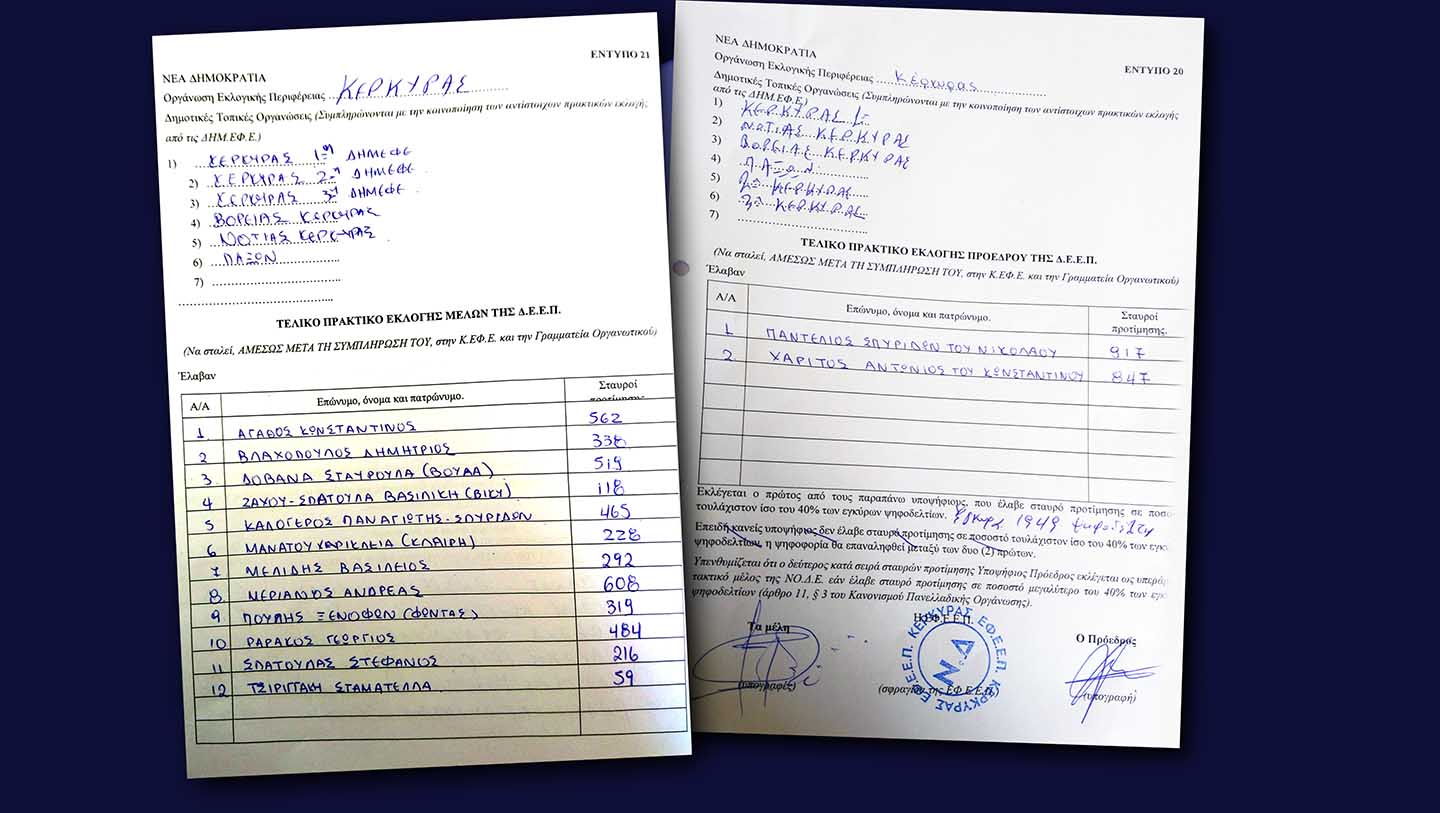 ΕΝΤΥΠΟ 21
ΝΕΑ ΔΗΜΟΚΡΑΤΙΑ
Οργάνωση Εκλογικής Περιφέρειας ΚΕΡΚΥΡΑΣ
Δημοτικές Τοπικές Οργανώσεις (Συμπληρώνονται με την κοινοποίηση των αντίστοιχων πρακτικών εκλογής
από τις ΔΗΜ.ΕΦ.Ε.)
1) ΚΕΡΚΥΡΑΣ 1η ΔΗΜΕΦΕ
2) ΚΕΡΚΥΡΑΣ 2η ΔΗΜΕΦΕ
3) ΚΕΡΚΥΡΑΣ 3η ΔΗΜΕΦΕ
4) ΒΟΡΕΙΑΣ ΚΕΡΚΥΡΑΣ
5) ΝΟΤΙΑΣ ΚΕΡΚΥΡΑΣ
6) ΠΑΞΩΝ
7) ..................................
ΤΕΛΙΚΟ ΠΡΑΚΤΙΚΟ ΕΚΛΟΓΗΣ ΜΕΛΩΝ ΤΗΣ Δ.Ε.Ε.Π.
(Να σταλεί, ΑΜΕΣΩΣ ΜΕΤΑ ΤΗ ΣΥΜΠΛΗΡΩΣΗ ΤΟΥ, στην Κ.ΕΦ.Ε. και την Γραμματεία Οργανωτικού)
Έλαβαν
Α/Α Επώνυμο, όνομα και πατρώνυμο. Σταυροί προτίμησης
1 ΑΓΑΘΟΣ ΚΩΝΣΤΑΝΤΙΝΟΣ 562
2 ΒΛΑΧΟΠΟΥΛΟΣ ΔΗΜΗΤΡΙΟΣ 338
3 ΔΟΒΑΝΑ ΣΤΑΥΡΟΥΛΑ (ΒΟΥΛΑ) 519
4 ΖΑΧΟΥ-ΣΠΑΤΟΥΛΑ ΒΑΣΙΛΙΚΗ (ΒΙΚΥ) 118
5 ΚΑΛΟΓΕΡΟΣ ΠΑΝΑΓΙΩΤΗΣ-ΣΠΥΡΙΔΩΝ 465
6 ΜΑΝΑΤΟΥ ΧΑΡΙΚΛΕΙΑ (ΚΛΑΙΡΗ) 228
7 ΜΕΛΙΔΗΣ ΒΑΣΙΛΕΙΟΣ 292
8 ΝΕΡΙΑΝΟΣ ΑΝΔΡΕΑΣ 608
9 ΠΟΥΛΗΣ ΞΕΝΟΦΩΝ (ΦΩΝΤΑΣ) 319
10 ΡΑΡΑΚΟΣ ΓΕΩΡΓΙΟΣ 484
11 ΣΠΑΤΟΥΛΑΣ ΣΤΕΦΑΝΟΣ 216
12 ΤΣΙΡΙΓΓΑΚΗ ΣΤΑΜΑΤΕΛΛΑ 59
ΝΕΑ ΔΗΜΟΚΡΑΤΙΑ
ΕΝΤΥΠΟ 20
Οργάνωση Εκλογικής Περιφέρειας Κέρκυρας
Δημοτικές Τοπικές Οργανώσεις (Συμπληρώνονται με την κοινοποίηση των αντίστοιχων πρακτικών εκλογής
από τις ΔΗΜ.ΕΦ.Ε.)
1) ΚΕΡΚΥΡΑΣ 1η
2) ΝΟΤΙΑΣ ΚΕΡΚΥΡΑΣ
3) ΒΟΡΕΙΑΣ ΚΕΡΚΥΡΑΣ
4) ΠΑΞΩΝ
5) 2η ΚΕΡΚΥΡΑΣ
6) 3η ΚΕΡΚΥΡΑΣ
7) ..................................
ΤΕΛΙΚΟ ΠΡΑΚΤΙΚΟ ΕΚΛΟΓΗΣ ΠΡΟΕΔΡΟΥ ΤΗΣ Δ.Ε.Ε.Π.
(Να σταλεί, ΑΜΕΣΩΣ ΜΕΤΑ ΤΗ ΣΥΜΠΛΗΡΩΣΗ ΤΟΥ, στην Κ.ΕΦ.Ε. και την Γραμματεία Οργανωτικού)
Έλαβαν
Α/Α Επώνυμο, όνομα και πατρώνυμο. Σταυροί προτίμησης.
1 ΠΑΝΤΕΛΙΟΣ ΣΠΥΡΙΔΩΝ ΤΟΥ ΝΙΚΟΛΑΟΥ 917
2 ΧΑΡΙΤΟΣ ΑΝΤΩΝΙΟΣ ΤΟΥ ΚΩΝΣΤΑΝΤΙΝΟΥ 847
Εκλέγεται ο πρώτος από τους παραπάνω υποψήφιους, που έλαβε σταυρό προτίμησης σε ποσο
τουλάχιστον ίσο του 40% των εγκύρων ψηφοδελτίων. 1949
Επειδή κανείς υποψήφιος δεν έλαβε σταυρό προτίμησης σε ποσοστό τουλάχιστον ίσο του 40% των εγκυ
ψηφοδελτίων, η ψηφοφορία θα επαναληφθεί μεταξύ των δυο (2) πρώτων.
Υπενθυμίζεται ότι ο δεύτερος κατά σειρά σταυρών προτίμησης Υποψήφιος Πρόεδρος εκλέγεται ως υπεράρ
τακτικό μέλος της ΝΟ.Δ.Ε. εάν έλαβε σταυρό προτίμησης σε ποσοστό μεγαλύτερο του 40% των εγκ
ψηφοδελτίων (άρθρο 11, § 3 του Κανονισμού Πανελλαδικής Οργάνωσης).
Τα μέλη
Η ΕΦ.Ε.Ε.Π.
Ο Πρόεδρος
ΕΦ.Ε.Ε.Π. ΚΕΡΚΥΡΑΣ ΕΦ.Ε.Ε.Π. ΚΕΡΚΥΡΑΣ
ΝΔ
(υπογραφές)
(σφραγίδα της ΕΦ.Ε.Ε.Π.)
(υπογραφή)